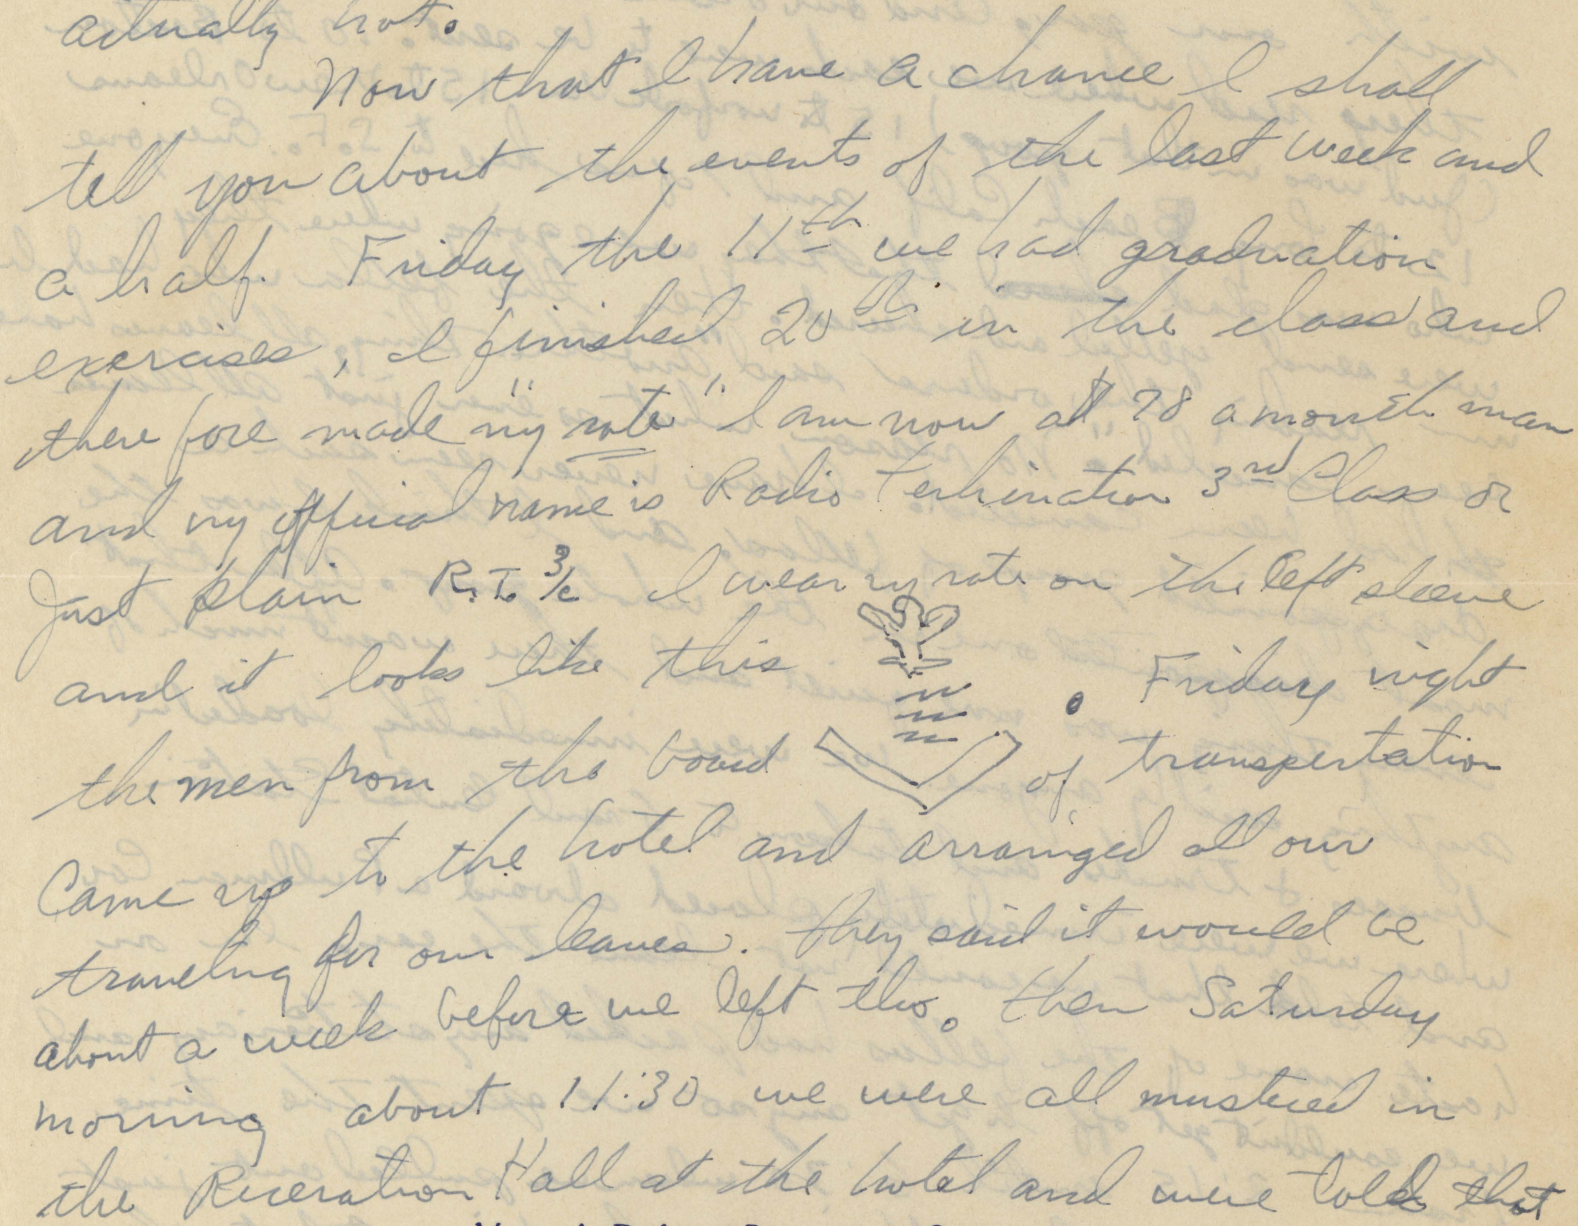 actually hot.
Now that I have a chance I shall
tell you about the events of the last week and
a half. Friday the 11th we had graduation
exercises, I finished 20th in the class and
there fore made my "rate" I am now a $78 a month man
and my official name is Radio Technician 3rd Class or
Just plain R.T. 3/c I wear my rate on the left sleeve
and it looks like this . Friday night
the men from the board of transportation
Came up to the hotel and arrainged all our
traveling for our leaves. they said it would be
about a week before we left tho. then Saturday
morning about 11:30 we were all mustered in
the Receration Hall at the hotel and were told that